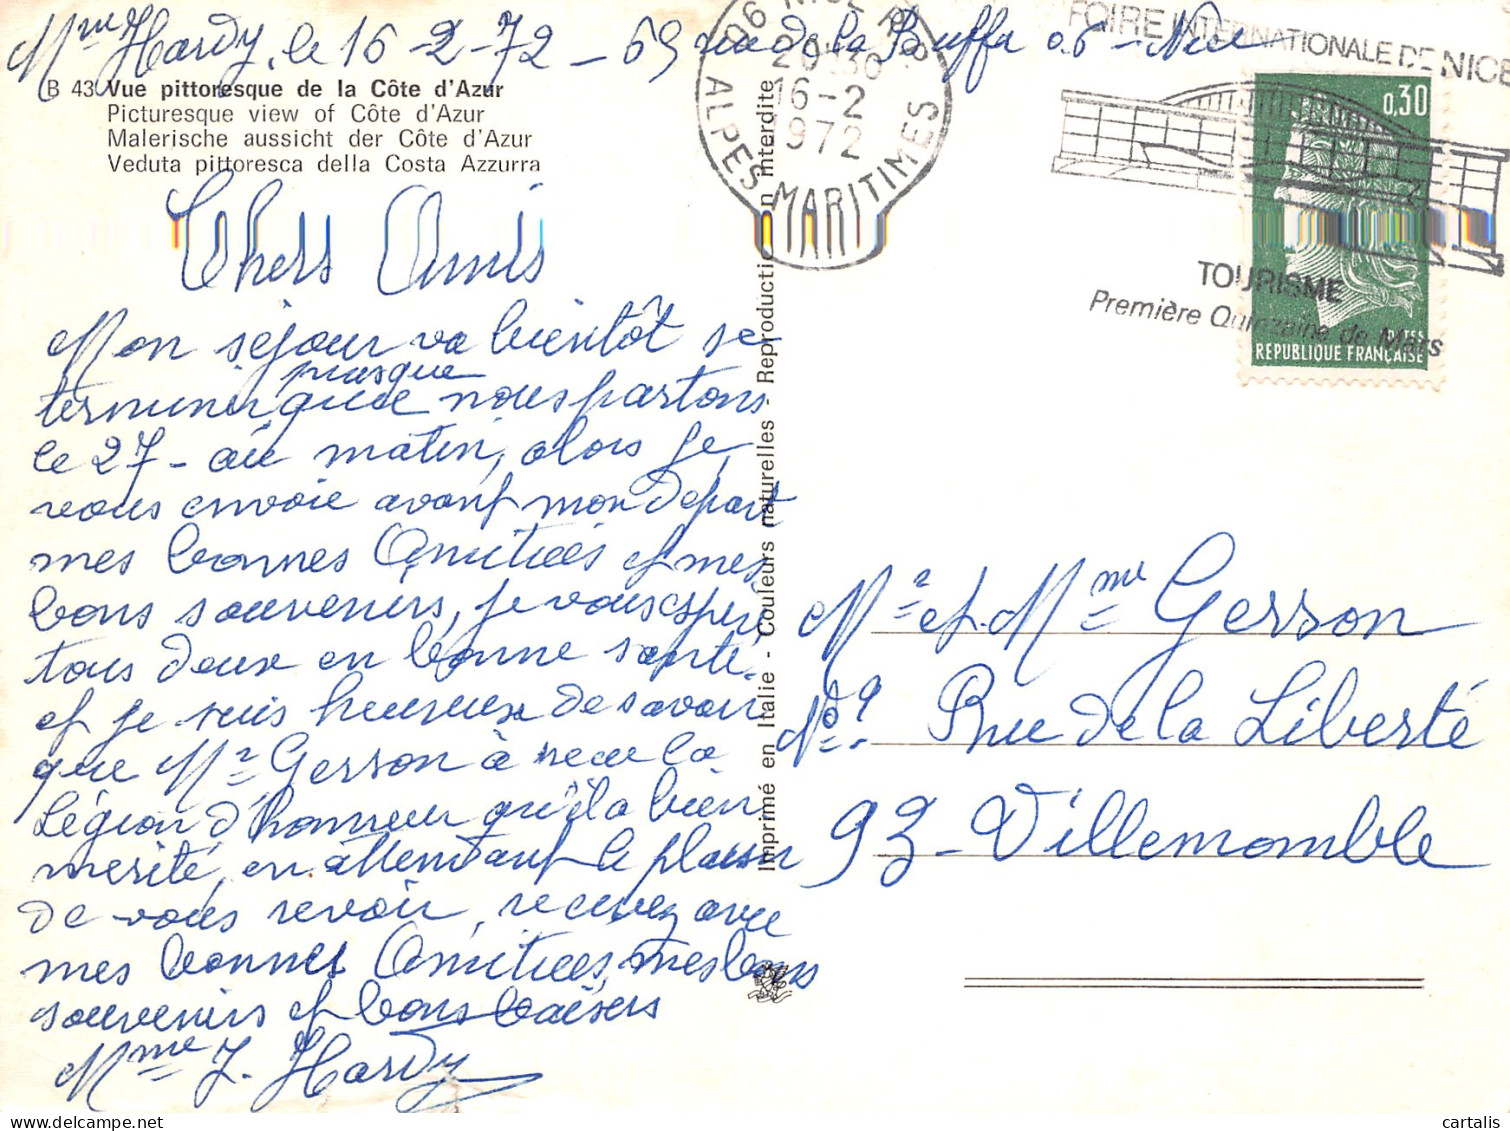 Mme Hardy, le 16-2-72 - 69 rue de la Buffa 06 - Nice
B 43 Vue pittoresque de la Côte d'Azur
Picturesque view of Côte d'Azur
Malerische aussicht der Côte d'Azur
Veduta pittoresca della Costa Azzurra
Chers Amis
Mon séjour va bientôt se
presque
terminer que nous partons
le 27 - au matin, alors je
vous envoie avant mon départ
mes bonnes Amitiés et mes
bons souvenirs, je vous espère
tous deux en bonne santé.
et je suis heureuse de savoir
que Mr Gerson à reçu la
Légion d'honneur qu'il a bien
mérité, en attendant le plaisir
de vous revoir, recevez avec
mes bonnes Amitiées, mes bons
souvenirs et bons baisers
Mme J. Hardy
Imprimé en Italie - Couleurs naturelles - Reproduction interdite
06 NICE R.P.
20H30
16-2
1972
ALPES MARITIMES
FOIRE INTERNATIONALE DE NICE
TOURISME
Première Quinzaine de Mars
0,30
REPUBLIQUE FRANÇAISE
POSTES
Mr et Mme Gerson
No 9 Rue de la Liberté
93 - Villemomble
cartalis